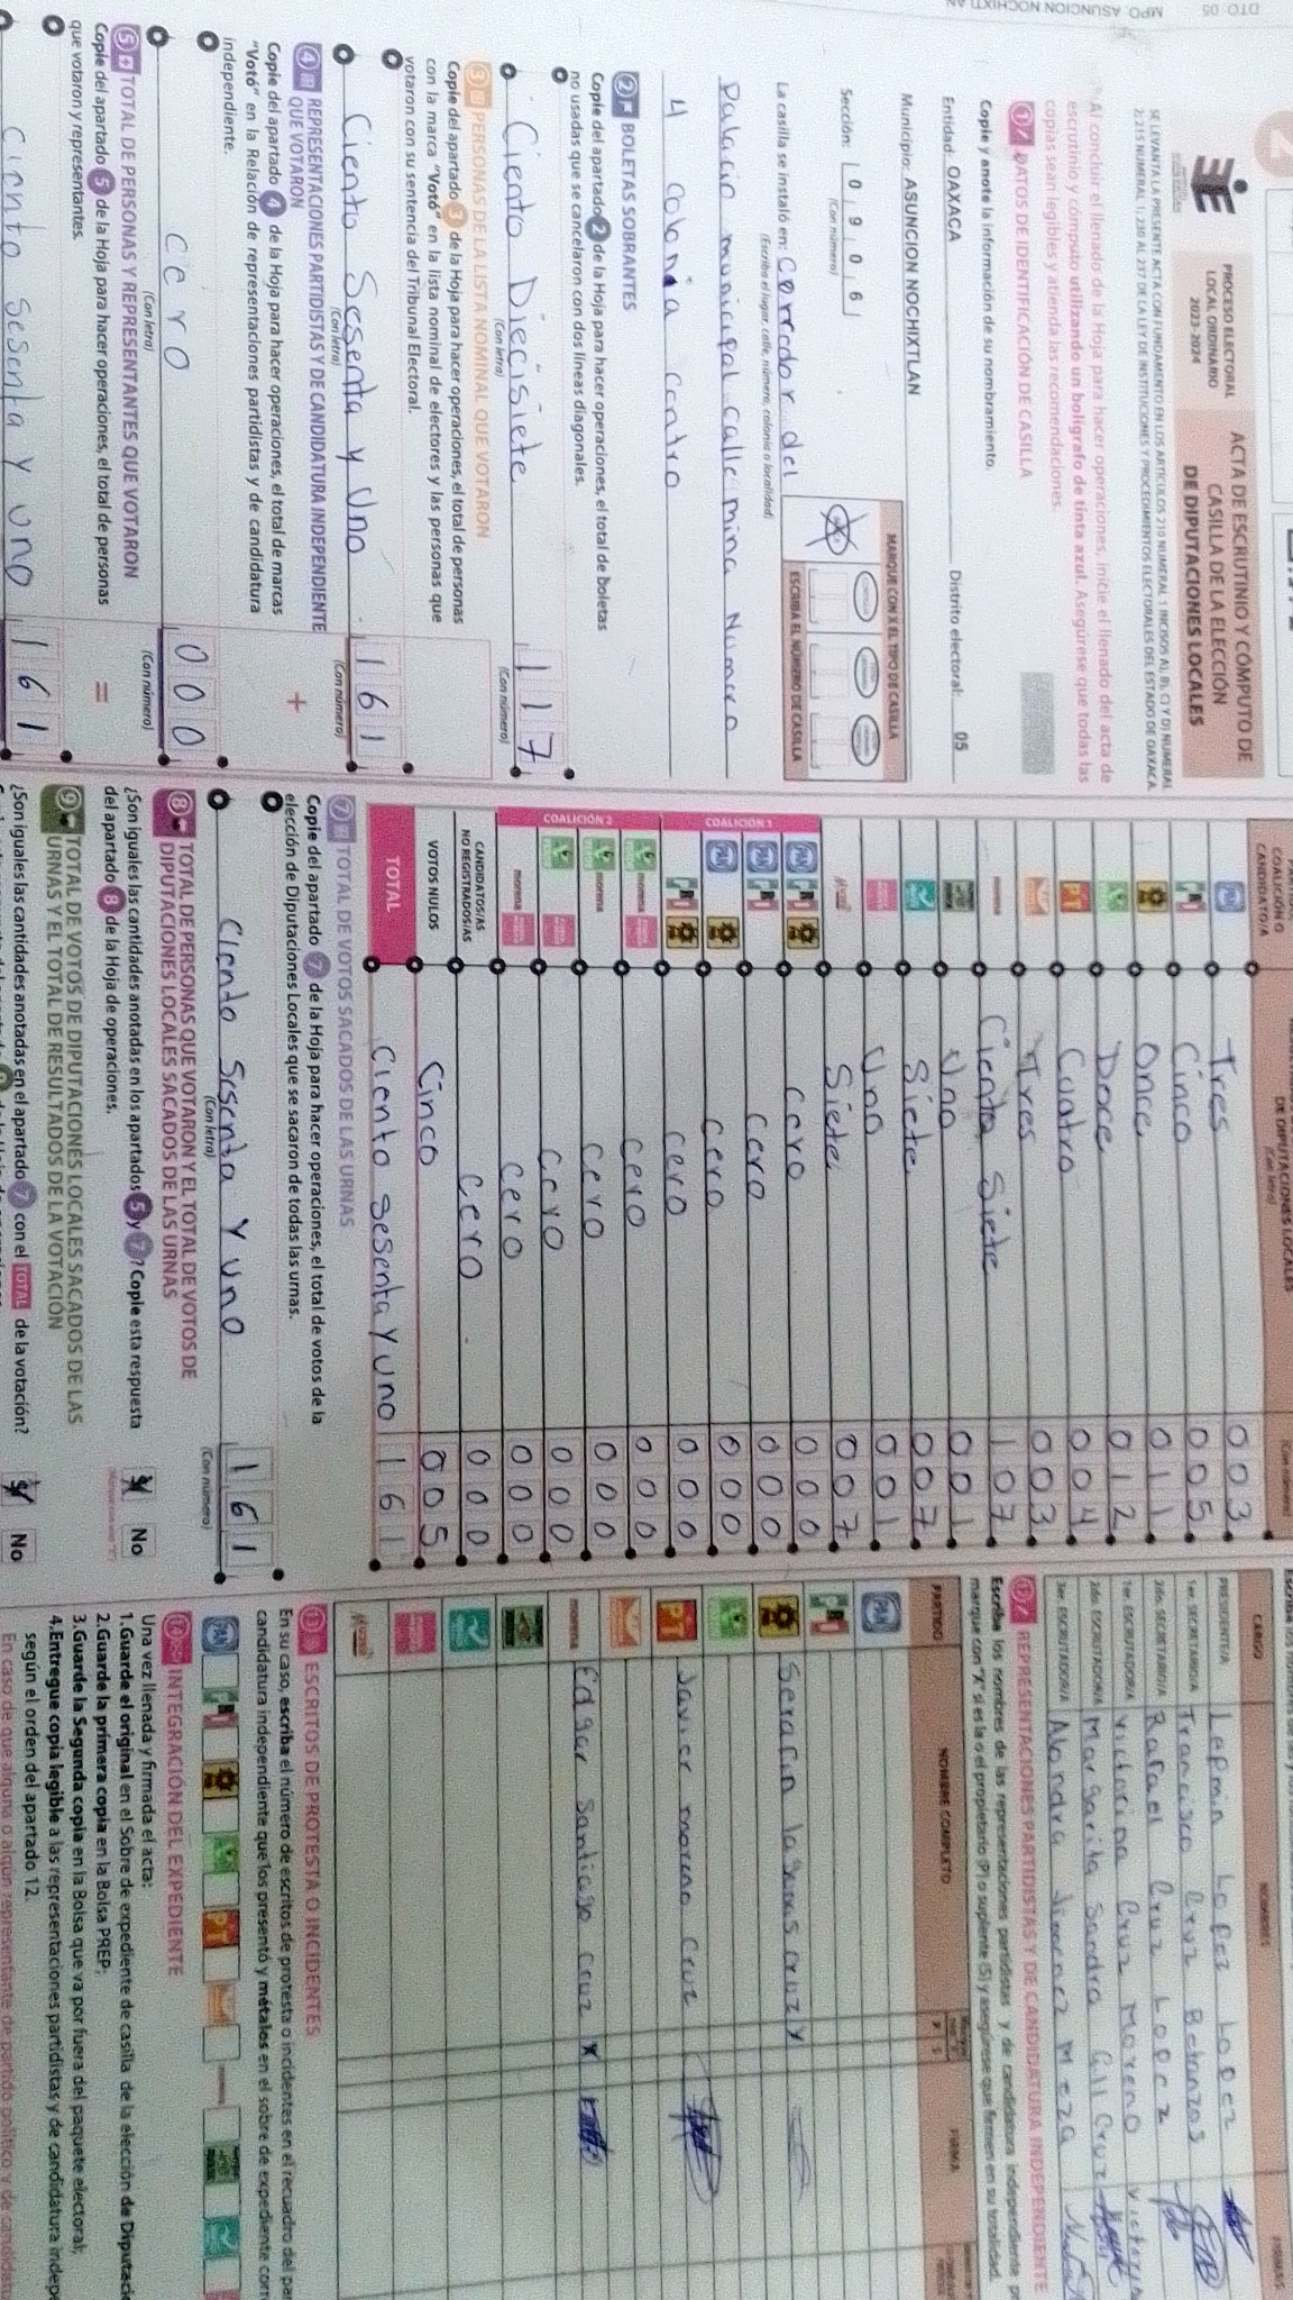 DTO. 05
MPO. ASUNCION NOCHIXTLAN
2
PROCESO ELECTORAL
LOCAL ORDINARIO
2023-2024
ACTA DE ESCRUTINIO Y CÓMPUTO DE
CASILLA DE LA ELECCIÓN
DE DIPUTACIONES LOCALES
Al concluir el llenado de la Hoja para hacer operaciones, inicie el llenado del acta de
escrutinio y cómputo utilizando un bolígrafo de tinta azul. Asegúrese que todas las
copias sean legibles y atienda las recomendaciones.
1 DATOS DE IDENTIFICACIÓN DE CASILLA
Copie y anote la información de su nombramiento.
Entidad: OAXACA Distrito electoral: 05
Municipio: ASUNCION NOCHIXTLAN
Sección: 0 9 0 6
(Con número)
MARQUE CON X EL TIPO DE CASILLA
ESCRIBA EL NÚMERO DE CASILLA
La casilla se instaló en: Corredor del
(Escriba el lugar, calle, número, colonia o localidad)
Palacio municipal calle mina Numero
4 colonia centro
2 BOLETAS SOBRANTES
Copie del apartado 2 de la Hoja para hacer operaciones, el total de boletas
no usadas que se cancelaron con dos líneas diagonales.
Ciento Diecisiete 117
(Con letra) (Con número)
3 PERSONAS DE LA LISTA NOMINAL QUE VOTARON
Copie del apartado 3 de la Hoja para hacer operaciones, el total de personas
con la marca "Votó" en la lista nominal de electores y las personas que
votaron con su sentencia del Tribunal Electoral.
Ciento Sesenta y Uno 161
(Con letra) (Con número)
4 REPRESENTACIONES PARTIDISTAS Y DE CANDIDATURA INDEPENDIENTE
QUE VOTARON
+
Copie del apartado 4 de la Hoja para hacer operaciones, el total de marcas
"Votó" en la Relación de representaciones partidistas y de candidatura
independiente.
Cero 000
(Con letra) (Con número)
5 TOTAL DE PERSONAS Y REPRESENTANTES QUE VOTARON
=
Copie del apartado 5 de la Hoja para hacer operaciones, el total de personas
que votaron y representantes.
Ciento Sesenta y uno 161
COALICIÓN O
CANDIDATO/A
DE DIPUTACIONES LOCALES
(Con letra)
PAN Tres 003
PRI Cinco 005
Once 011
Doce 012
PT Cuatro 004
Tres 003
morena Ciento Siete 107
Una 001
Siete 007
Uno 001
Siete 007
COALICIÓN 1
PAN PRI Cero 000
PAN PRI Cero 000
PAN Cero 000
PRI Cero 000
COALICIÓN 2
morena Cero 000
morena Cero 000
Cero 000
morena Cero 000
CANDIDATOS/AS
NO REGISTRADOS/AS Cero 000
VOTOS NULOS Cinco 005
TOTAL Ciento Sesenta y uno 161
7 TOTAL DE VOTOS SACADOS DE LAS URNAS
Copie del apartado 7 de la Hoja para hacer operaciones, el total de votos de la
elección de Diputaciones Locales que se sacaron de todas las urnas.
Ciento Sesenta Y uno 161
(Con letra) (Con número)
8 TOTAL DE PERSONAS QUE VOTARON Y EL TOTAL DE VOTOS DE
DIPUTACIONES LOCALES SACADOS DE LAS URNAS
¿Son iguales las cantidades anotadas en los apartados 5 y 7? Copie esta respuesta
del apartado 8 de la Hoja de operaciones.
No
9 TOTAL DE VOTOS DE DIPUTACIONES LOCALES SACADOS DE LAS
URNAS Y EL TOTAL DE RESULTADOS DE LA VOTACIÓN
¿Son iguales las cantidades anotadas en el apartado 7 con el TOTAL de la votación?
No
CARGO NOMBRES FIRMAS
PRESIDENTE/A Lepmin Lopez Lopez
1er. SECRETARIO/A Francisco Cruz Betanzos
2do. SECRETARIO/A Rafael Cruz Lopez
1er. ESCRUTADOR/A Victorina Cruz Moreno
2do. ESCRUTADOR/A Margarita Sandra Gill Cruz
3er. ESCRUTADOR/A Alondra Jimenez Meza
12 REPRESENTACIONES PARTIDISTAS Y DE CANDIDATURA INDEPENDIENTE
Escriba los nombres de las representaciones partidistas y de candidatura independiente
marque con "X" si es la o el propietario (P) o suplente (S) y asegúrese que firmen en su totalidad.
PARTIDO NOMBRE COMPLETO P S FIRMA
PAN
PRI
Serafin lagunas cruz
PT Javier moreno cruz
morena Edgar Santiago cruz X
13 ESCRITOS DE PROTESTA O INCIDENTES
En su caso, escriba el número de escritos de protesta o incidentes en el recuadro del
candidatura independiente que los presentó y métalos en el sobre de expediente
PAN PRI PT
14 INTEGRACIÓN DEL EXPEDIENTE
Una vez llenada y firmada el acta:
1.Guarde el original en el Sobre de expediente de casilla de la elección de
2.Guarde la primera copia en la Bolsa PREP;
3.Guarde la Segunda copia en la Bolsa que va por fuera del paquete electoral;
4.Entregue copia legible a las representaciones partidistas y de candidatura
según el orden del apartado 12.
En caso de que alguna o algún representante de partido político y de